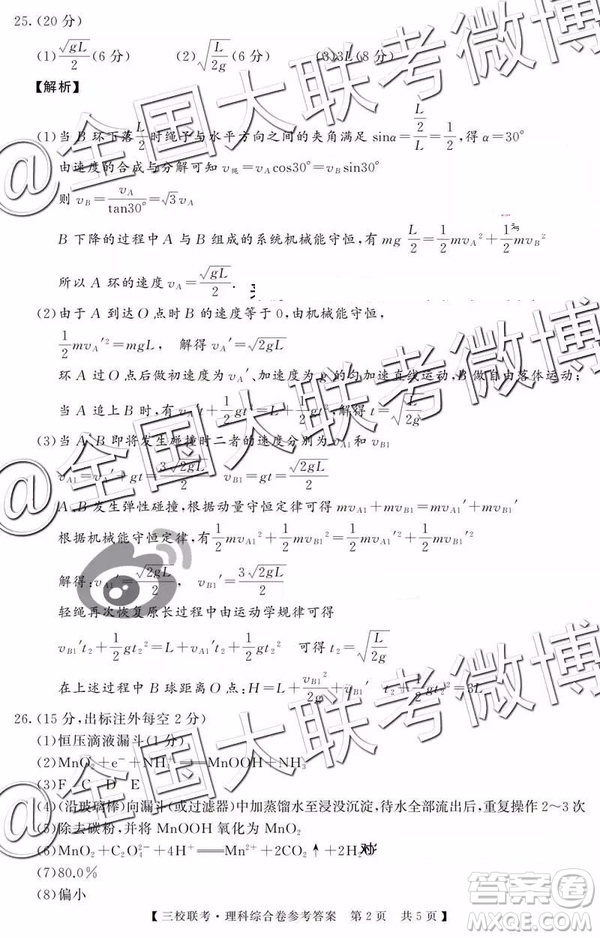 25.(20分)
(1) √gL/2 (6分) (2) √(L/2g) (6分) (3)3L(8分)
【解析】
(1)当 B 环下落 L/2 时绳子与水平方向之间的夹角满足 sinα=(L/2)/L=1/2,得 α=30°
由速度的合成与分解可知 v绳=vAcos30°=vBsin30°
则 vB=vA/tan30°=√3vA
B 下降的过程中 A 与 B 组成的系统机械能守恒,有 mg L/2=1/2 mvA²+1/2 mvB²
所以 A 环的速度 vA=√gL/2.
(2)由于 A 到达 O 点时 B 的速度等于 0,由机械能守恒,
1/2 mvA′²=mgL, 解得 vA′=√2gL
环 A 过 O 点后做初速度为 vA′、加速度为 g 的匀加速直线运动,B 做自由落体运动;
当 A 追上 B 时,有 vA′t+1/2 gt²=L+1/2 gt²,解得 t=√(L/2g)
(3)当 A、B 即将发生碰撞时二者的速度分别为 vA1 和 vB1
vA1=vA′+gt=3√2gL/2 vB1=gt=√2gL/2
A、B 发生弹性碰撞,根据动量守恒定律可得 mvA1+mvB1=mvA1′+mvB1′
根据机械能守恒定律,有 1/2 mvA1²+1/2 mvB1²=1/2 mvA1′²+1/2 mvB1′²
解得:vA1′=√2gL/2,vB1′=3√2gL/2
轻绳再次恢复原长过程中由运动学规律可得
vB1′t2+1/2 gt2²=L+vA1′t2+1/2 gt2² 可得 t2=√(L/2g)
在上述过程中 B 球距离 O 点:H=L+1/2 gt²+vB1′t2+1/2 gt2²=3L
26.(15 分,出标注外每空 2 分)
(1)恒压滴液漏斗(1 分)
(2)MnO₂+e⁻+NH₄⁺=MnOOH+NH₃
(3)F C D E
(4)(沿玻璃棒)向漏斗(或过滤器)中加蒸馏水至浸没沉淀,待水全部流出后,重复操作 2~3 次
(5)除去碳粉,并将 MnOOH 氧化为 MnO₂
(6)MnO₂+C₂O₄²⁻+4H⁺=Mn²⁺+2CO₂↑+2H₂O
(7)80.0%
(8)偏小
【三校联考·理科综合卷参考答案 第 2 页 共 5 页】
@全国大联考微博
@全国大联考微博
@全国大联考微博
答案圈